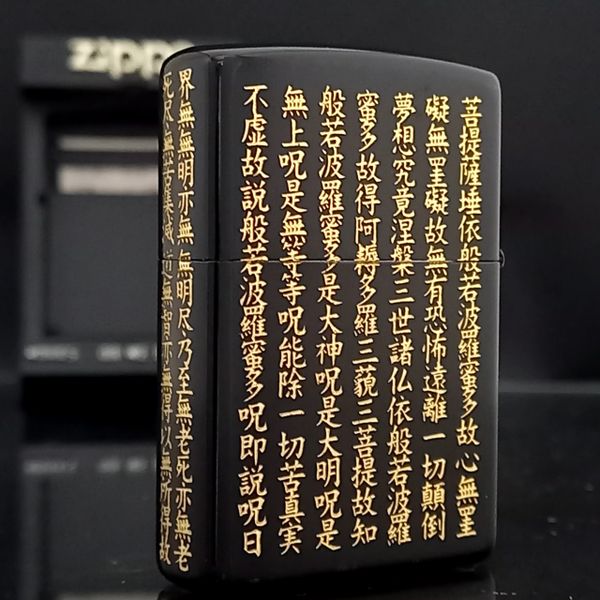 zippo
界無無明亦無無明尽乃至無老死亦無老
死尽無苦集滅道無智亦無得以無所得故
菩提薩埵依般若波羅蜜多故心無罣
礙無罣礙故無有恐怖遠離一切顛倒
夢想究竟涅槃三世諸仏依般若波羅
蜜多故得阿耨多羅三藐三菩提故知
般若波羅蜜多是大神呪是大明呪是
無上呪是無等等呪能除一切苦真実
不虚故説般若波羅蜜多呪即説呪曰